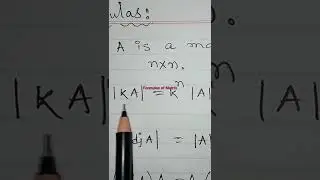 ulas:
A is a ma
n×n.
|KA| = kⁿ |A|
Formulas of Matrix
dj A| = |A|